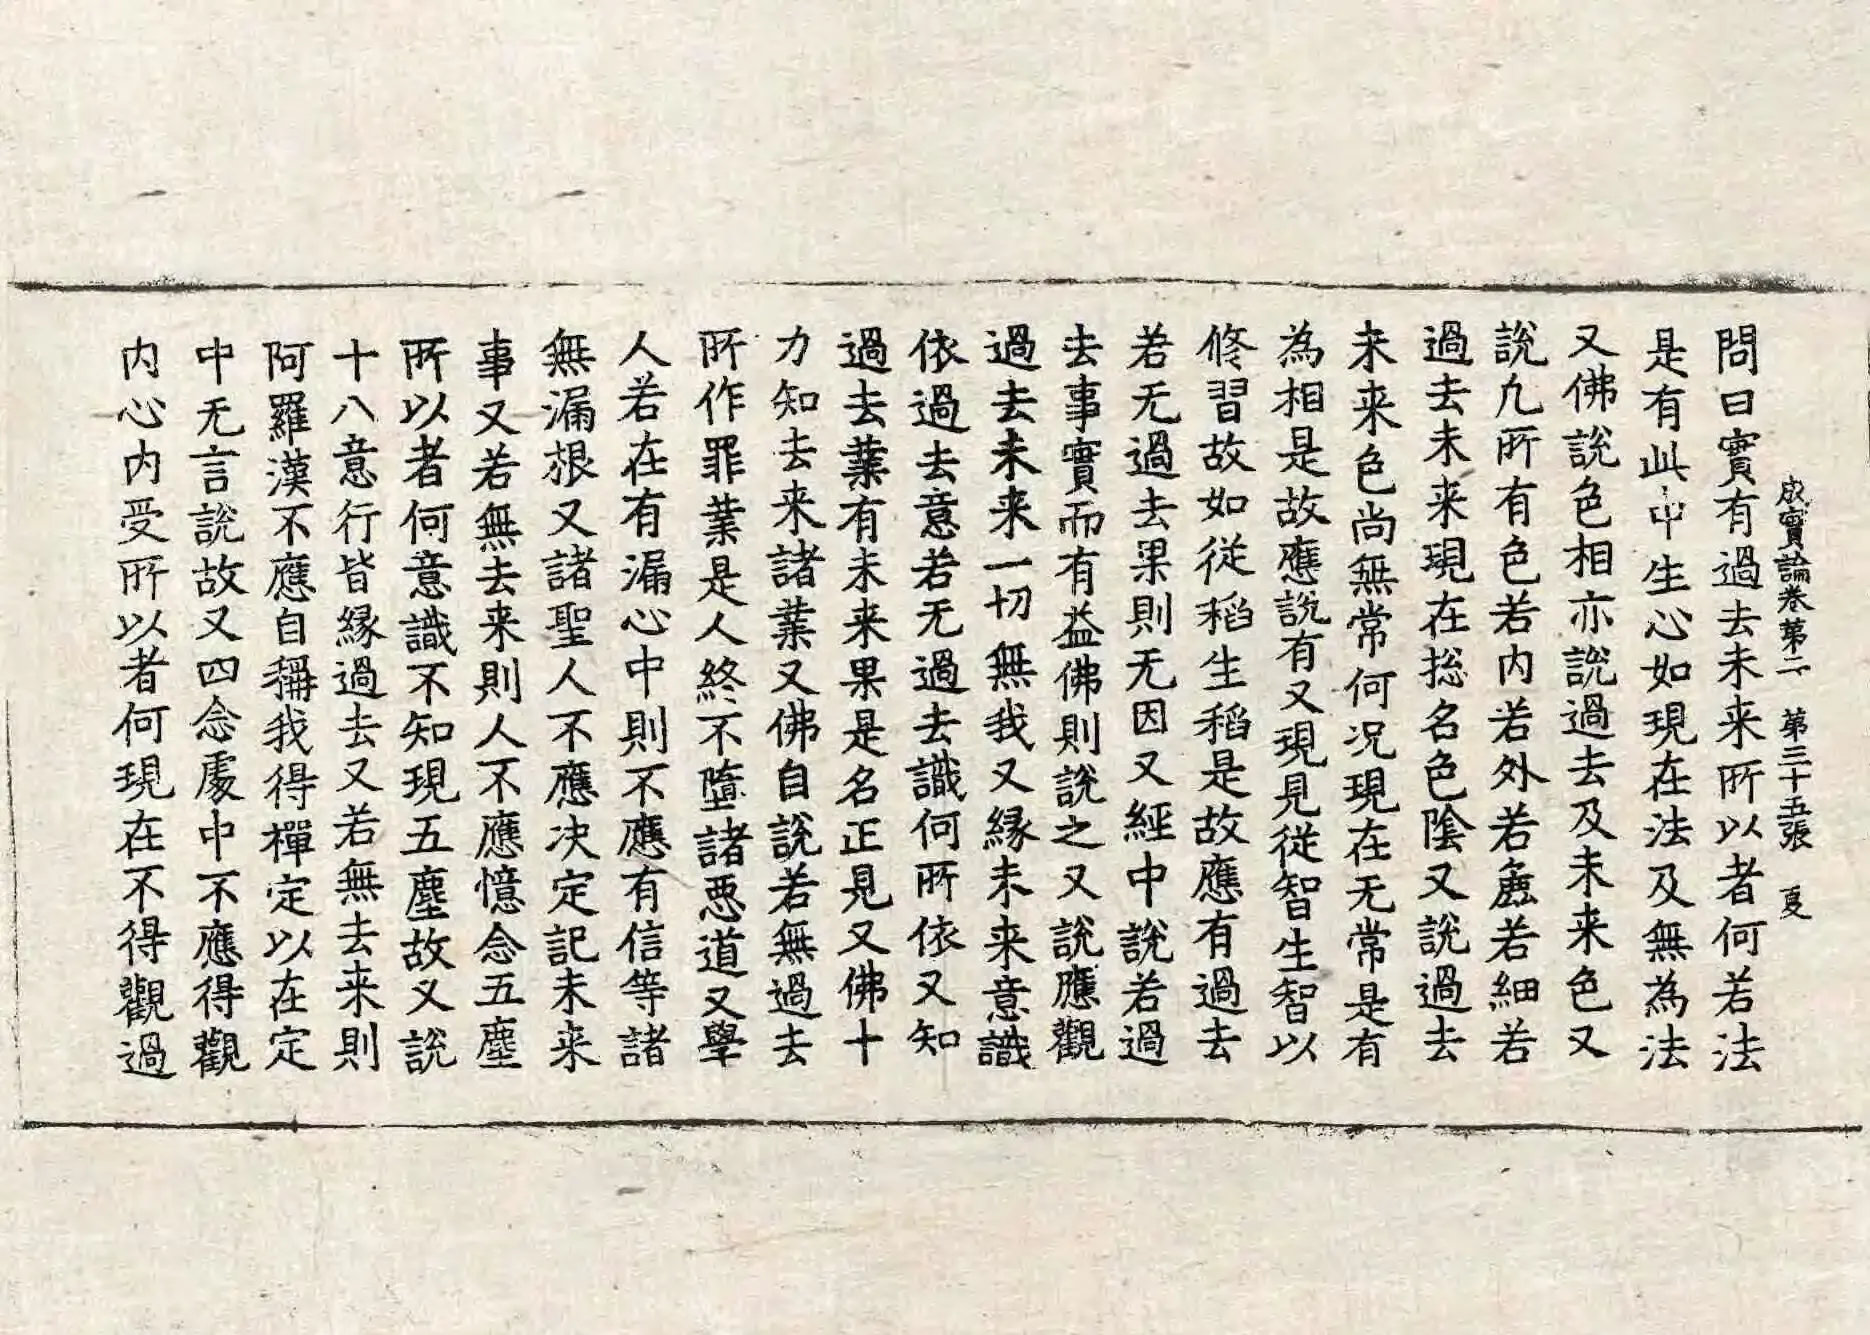 成實論卷第二 第三十五張 夏
問曰實有過去未来所以者何若法
是有此中生心如現在法及無為法
又佛說色相亦說過去及未来色又
說九所有色若内若外若麁若細若
過去未来現在捴名色陰又說過去
未来色尚無常何况現在无常是有
為相是故應說有又現見從智生智以
修習故如從稻生稻是故應有過去
若无過去果則无因又經中說若過
去事實而有益佛則說之又說應觀
過去未来一切無我又縁未来意識
依過去意若无過去識何所依又知
過去業有未来果是名正見又佛十
力知去来諸業又佛自說若無過去
所作罪業是人終不墮諸惡道又學
人若在有漏心中則不應有信等諸
無漏根又諸聖人不應决定記未来
事又若無去来則人不應憶念五塵
所以者何意識不知現五塵故又說
十八意行皆縁過去又若無去来則
阿羅漢不應自稱我得禪定以在定
中无言說故又四念處中不應得觀
内心内受所以者何現在不得觀過